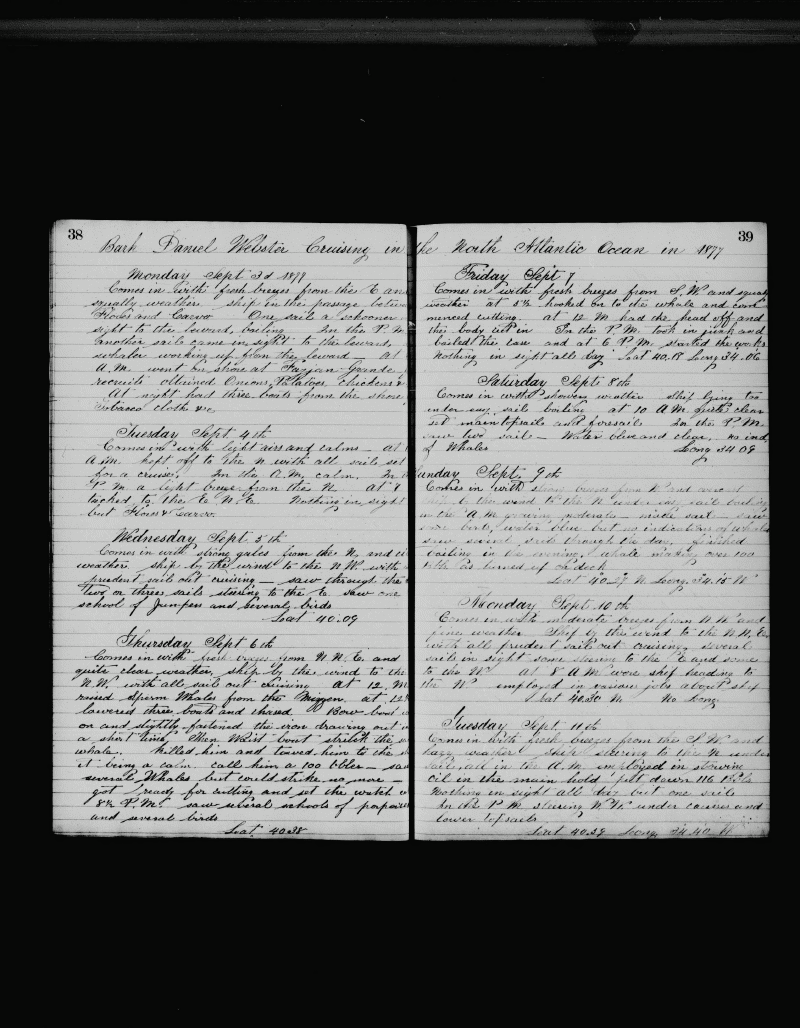 38
Bark Daniel Webster Cruising in
Monday Sept 3d 1877
Comes in with fresh breezes from the E and
squally weather ship in the passage between
Flores and Corvo One sail a schooner
sight to the leward, boiling In the P M
another sail came in sight to the leward,
whaler working up from the leward - at
A.M. went on shore at Fayan Grande
recruits obtained Onions, Potatoes, chickens
At night had three boats from the shore
Tobacco cloth &c.
Tuesday Sept 4th
Comes in with light airs and calms - at
A.M. kept off to the N with all sail set
for a cruise. In the A.M. calm. In
P.M. a light breeze from the N. at
tacked to the E.N.E. Nothing in sight
but Flores & Corvo.
Wednesday Sept 5th
Comes in with strong gales from the N. and
weather ship by the wind to the N.W. with
prudent sail out cruising - saw through the
two or three sails steering to the E. saw one
school of Jumpers and several birds
Lat 40.09
Thursday Sept 6th
Comes in with fresh breezes from N.N.E. and
quite clear weather, ship by the wind to the
N.W. with all sail out cruising at 12. M
raised Sperm Whales from the Mizzen. at 12
lowered three boats and chased Bow boat
on and slightly fastened the iron drawing out
a short time, Then Waist boat struck the
whale. killed him and towed him to the
it being a calm call him a 100 bbler - saw
several Whales but could strike no more -
got ready for cutting and set the watch
8½ P.M. saw several schools of porpoises
and several birds
Lat. 40.38
39
the North Atlantic Ocean in 1877
Friday Sept 7
Comes in with fresh breezes from S.W. and squally
weather at 5½ hooked on to the whale and com
menced cutting. at 12 M had the head off and
the body cut in In the P.M. took in junk and
bailed the case and at 6 P.M. started the works
Nothing in sight all day Lat 40.18 Long 34.06
Saturday Sept 8th
Comes in with showery weather ship lying too
under easy sails boiling at 10 A.M. quite clear
set main topsails and foresails In the P.M.
saw two sail - Water blue and clear, no ind
of Whales Long 34 09
Sunday Sept. 9th
Comes in with strong breezes from N and overcast
ship by the wind to the N under easy sail boiling
in the A.M. growing moderate - made sail - saw
some birds, water blue but no indications of whales
saw several sails through the day, finished
boiling in the evening, whale making over 100
bbls as turned up on deck
Lat 40.27 N Long. 34.15 W
Monday Sept. 10th
Comes in with moderate breezes from N W and
fine weather Ship by the wind to the N.N.E.
with all prudent sail out cruising. several
sails in sight some steering to the E and some
to the W. at 8 A M wore ship heading to
the W. employed in various jobs about ship
Lat 40.30 N No Long.
Tuesday Sept. 11th
Comes in with fresh breezes from the S.W. and
hazy weather ship steering to the N under
sail, all in the A.M. employed in stowing
Oil in the main hold put down 116 Bbls
Nothing in sight all day but one sail
In the P.M. steering N.W. under courses and
lower topsails
Lat 40.39 Long. 34.40 W